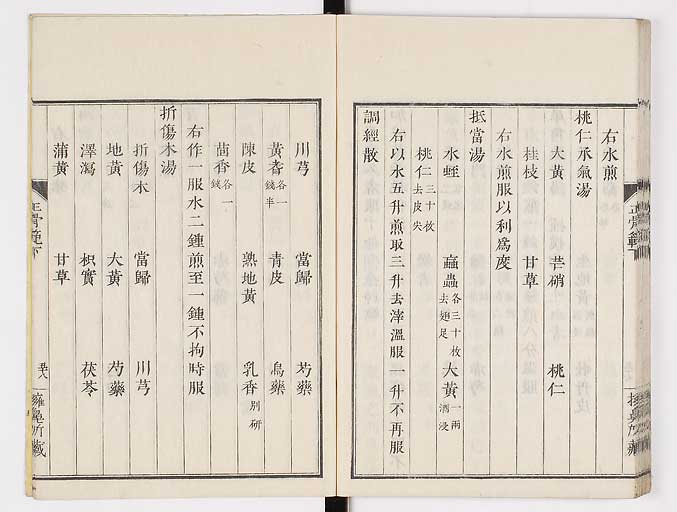 右水煎
桃仁承氣湯
大黃 芒硝 桃仁
桂枝 甘草
右水煎服以利為度
抵當湯
水蛭 蝱蟲各三十枚去翅足 大黃一兩酒浸
桃仁三十枚去皮尖
右以水五升煎取三升去滓溫服一升不再服
調經散
川芎 當歸 芍藥
黃耆各一錢半 青皮 烏藥
陳皮 熟地黃 乳香別研
茴香各一錢
右作一服水二鍾煎至一鍾不拘時服
折傷木湯
折傷木 當歸 川芎
地黃 大黃 芍藥
澤瀉 枳實 茯苓
蒲黃 甘草
正骨範下
正骨範下